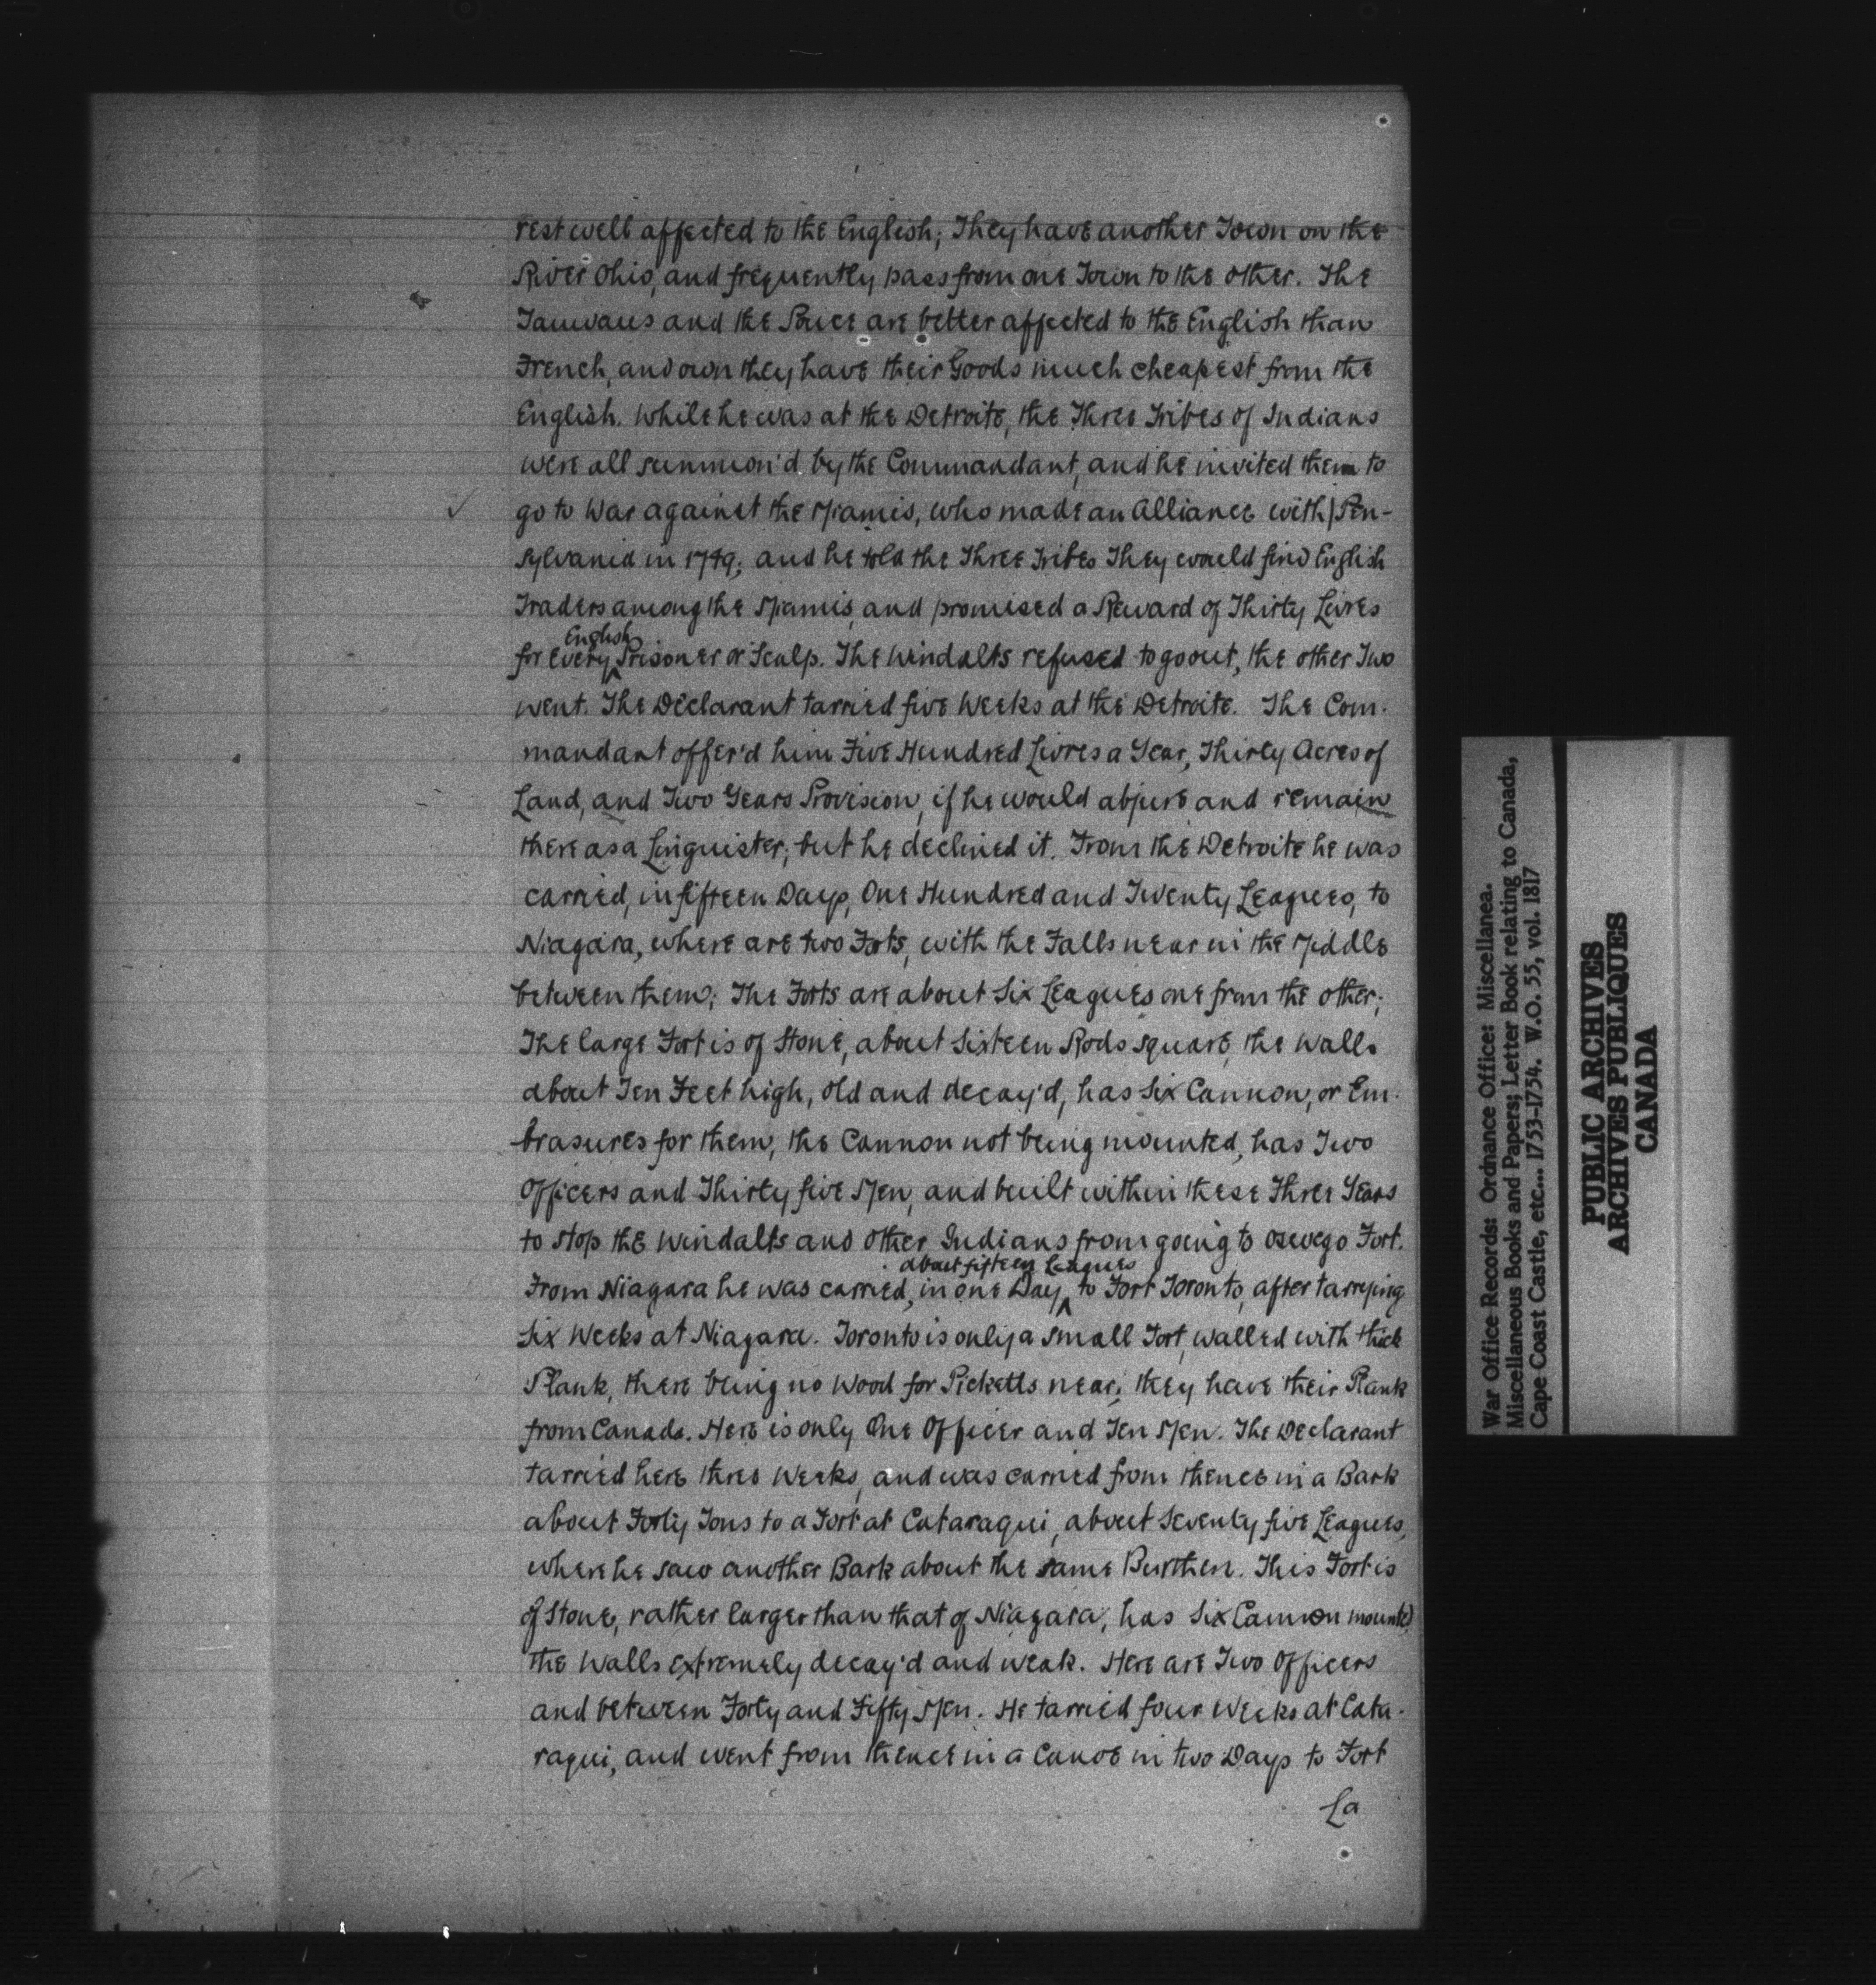 rest well affected to the English; They have another Town on the
River Ohio, and frequently pass from one Town to the other. The
Tauwaus and the Pouce are better affected to the English than
French, and own they have their Goods much cheapest from the
English. While he was at the Detroite, the Three Tribes of Indians
were all summon'd by the Commandant, and he invited them to
go to War against the Miamis, who made an Alliance with Pen-
sylvania in 1749; and he told the Three Tribes They would find English
Traders among the Miamis, and promised a Reward of Thirty Livres
for every English Prisoner or Scalp. The Windalts refused to go out, the other Two
went. The Declarant tarried five Weeks at the Detroite. The Com-
mandant offer'd him Five Hundred Livres a Year, Thirty Acres of
Land, and Two Years Provision, if he would abjure and remain
there as a Linguister; but he declined it. From the Detroite he was
carried, in fifteen Days, One Hundred and Twenty Leagues, to
Niagara, where are two Forts, with the Falls near in the Middle
between them; The Forts are about Six Leagues one from the other;
The large Fort is of Stone, about Sixteen Rods square, the Walls
about Ten Feet high, old and decay'd, has Six Cannon, or Em-
brasures for them, the Cannon not being mounted, has Two
Officers and Thirty five Men, and built within these Three Years
to stop the Windalts and other Indians from going to Oswego Fort.
From Niagara he was carried, in one Day, about fifteen Leagues to Fort Toronto, after tarrying
Six Weeks at Niagara. Toronto is only a small Fort, walled with thick
Plank, there being no Wood for Picketts near; they have their Plank
from Canada. Here is only One Officer and Ten Men. The Declarant
tarried here three Weeks, and was carried from thence in a Bark
about Forty Tons to a Fort at Cataraqui, about Seventy five Leagues,
where he saw another Bark about the same Burthen. This Fort is
of Stone, rather larger than that of Niagara, has Six Cannon mounted,
the Walls extremely decay'd and weak. Here are Two Officers
and between Forty and Fifty Men. He tarried four Weeks at Cata-
raqui, and went from thence in a Canoe in two Days to Fort
La
War Office Records: Ordnance Office: Miscellanea.
Miscellaneous Books and Papers; Letter Book relating to Canada,
Cape Coast Castle, etc... 1753-1754. W.O. 55, vol. 1817
PUBLIC ARCHIVES
ARCHIVES PUBLIQUES
CANADA